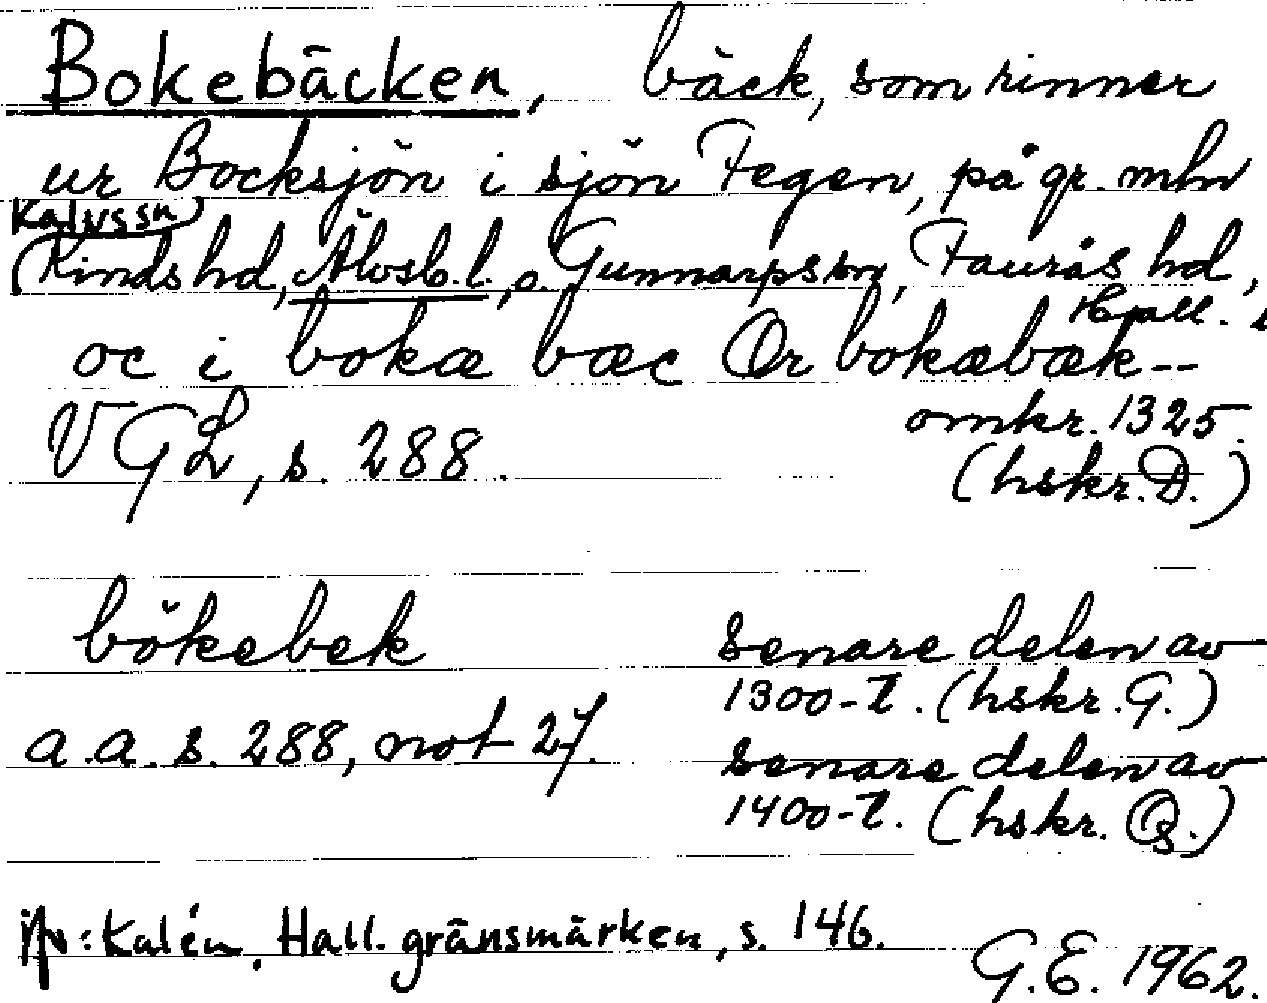 Bokebäcken, bäck, som rinner
ur Bocksjön i sjön Fegen, på gr. mln
Kalvs sn
(Kinds hd, Älvsb. l., o. Gunnarps sn, Faurås hd,
Hall. l
oc i bokæ bæc Or bokæbæk--
omkr. 1325.
VGL, s. 288. (hskr. D.)
bökebek senare delen av
1300-t. (hskr. G.)
a.a. s. 288, not 27. senare delen av
1400-t. (hskr. Q.)
Jfr: Kalén, Hall. gränsmärken, s. 146.
G.E. 1962.